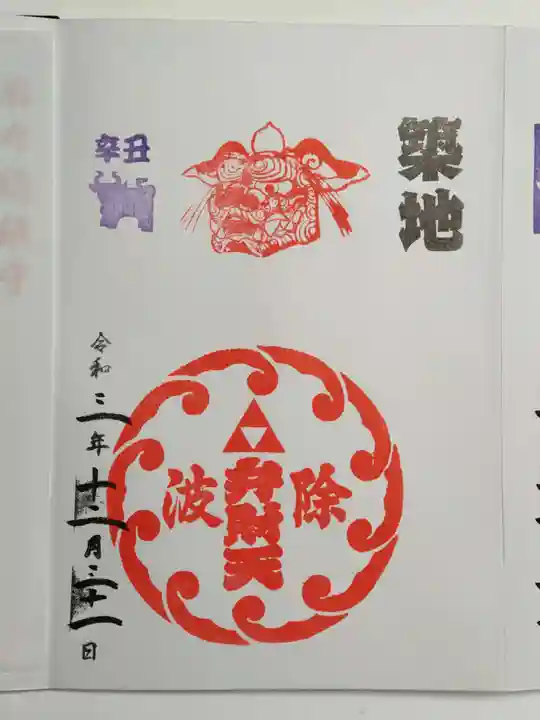 築地
辛丑
除波
弁財天
令和三年十二月三十一日